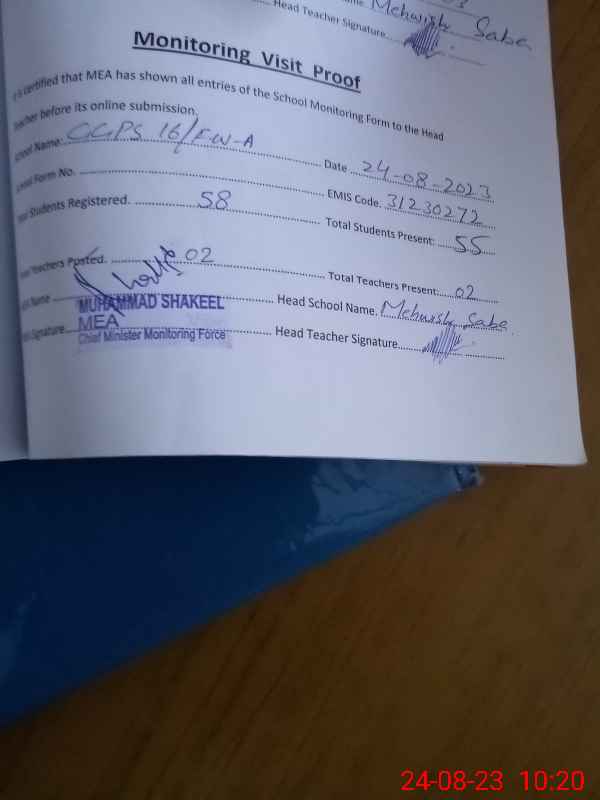 Head Teacher Signature
Mehwish Saba
Monitoring Visit Proof
is certified that MEA has shown all entries of the School Monitoring Form to the Head
Teacher before its online submission.
School Name: GGPS 16/FW-A Date 24-08-2023
School Form No. EMIS Code. 31230272
Students Registered. 58 Total Students Present: 55
Teachers Posted. 02 Total Teachers Present: 02
Name MUHAMMAD SHAKEEL Head School Name. Mehwish Saba
Signature MEA Head Teacher Signature
Chief Minister Monitoring Force
24-08-23 10:20